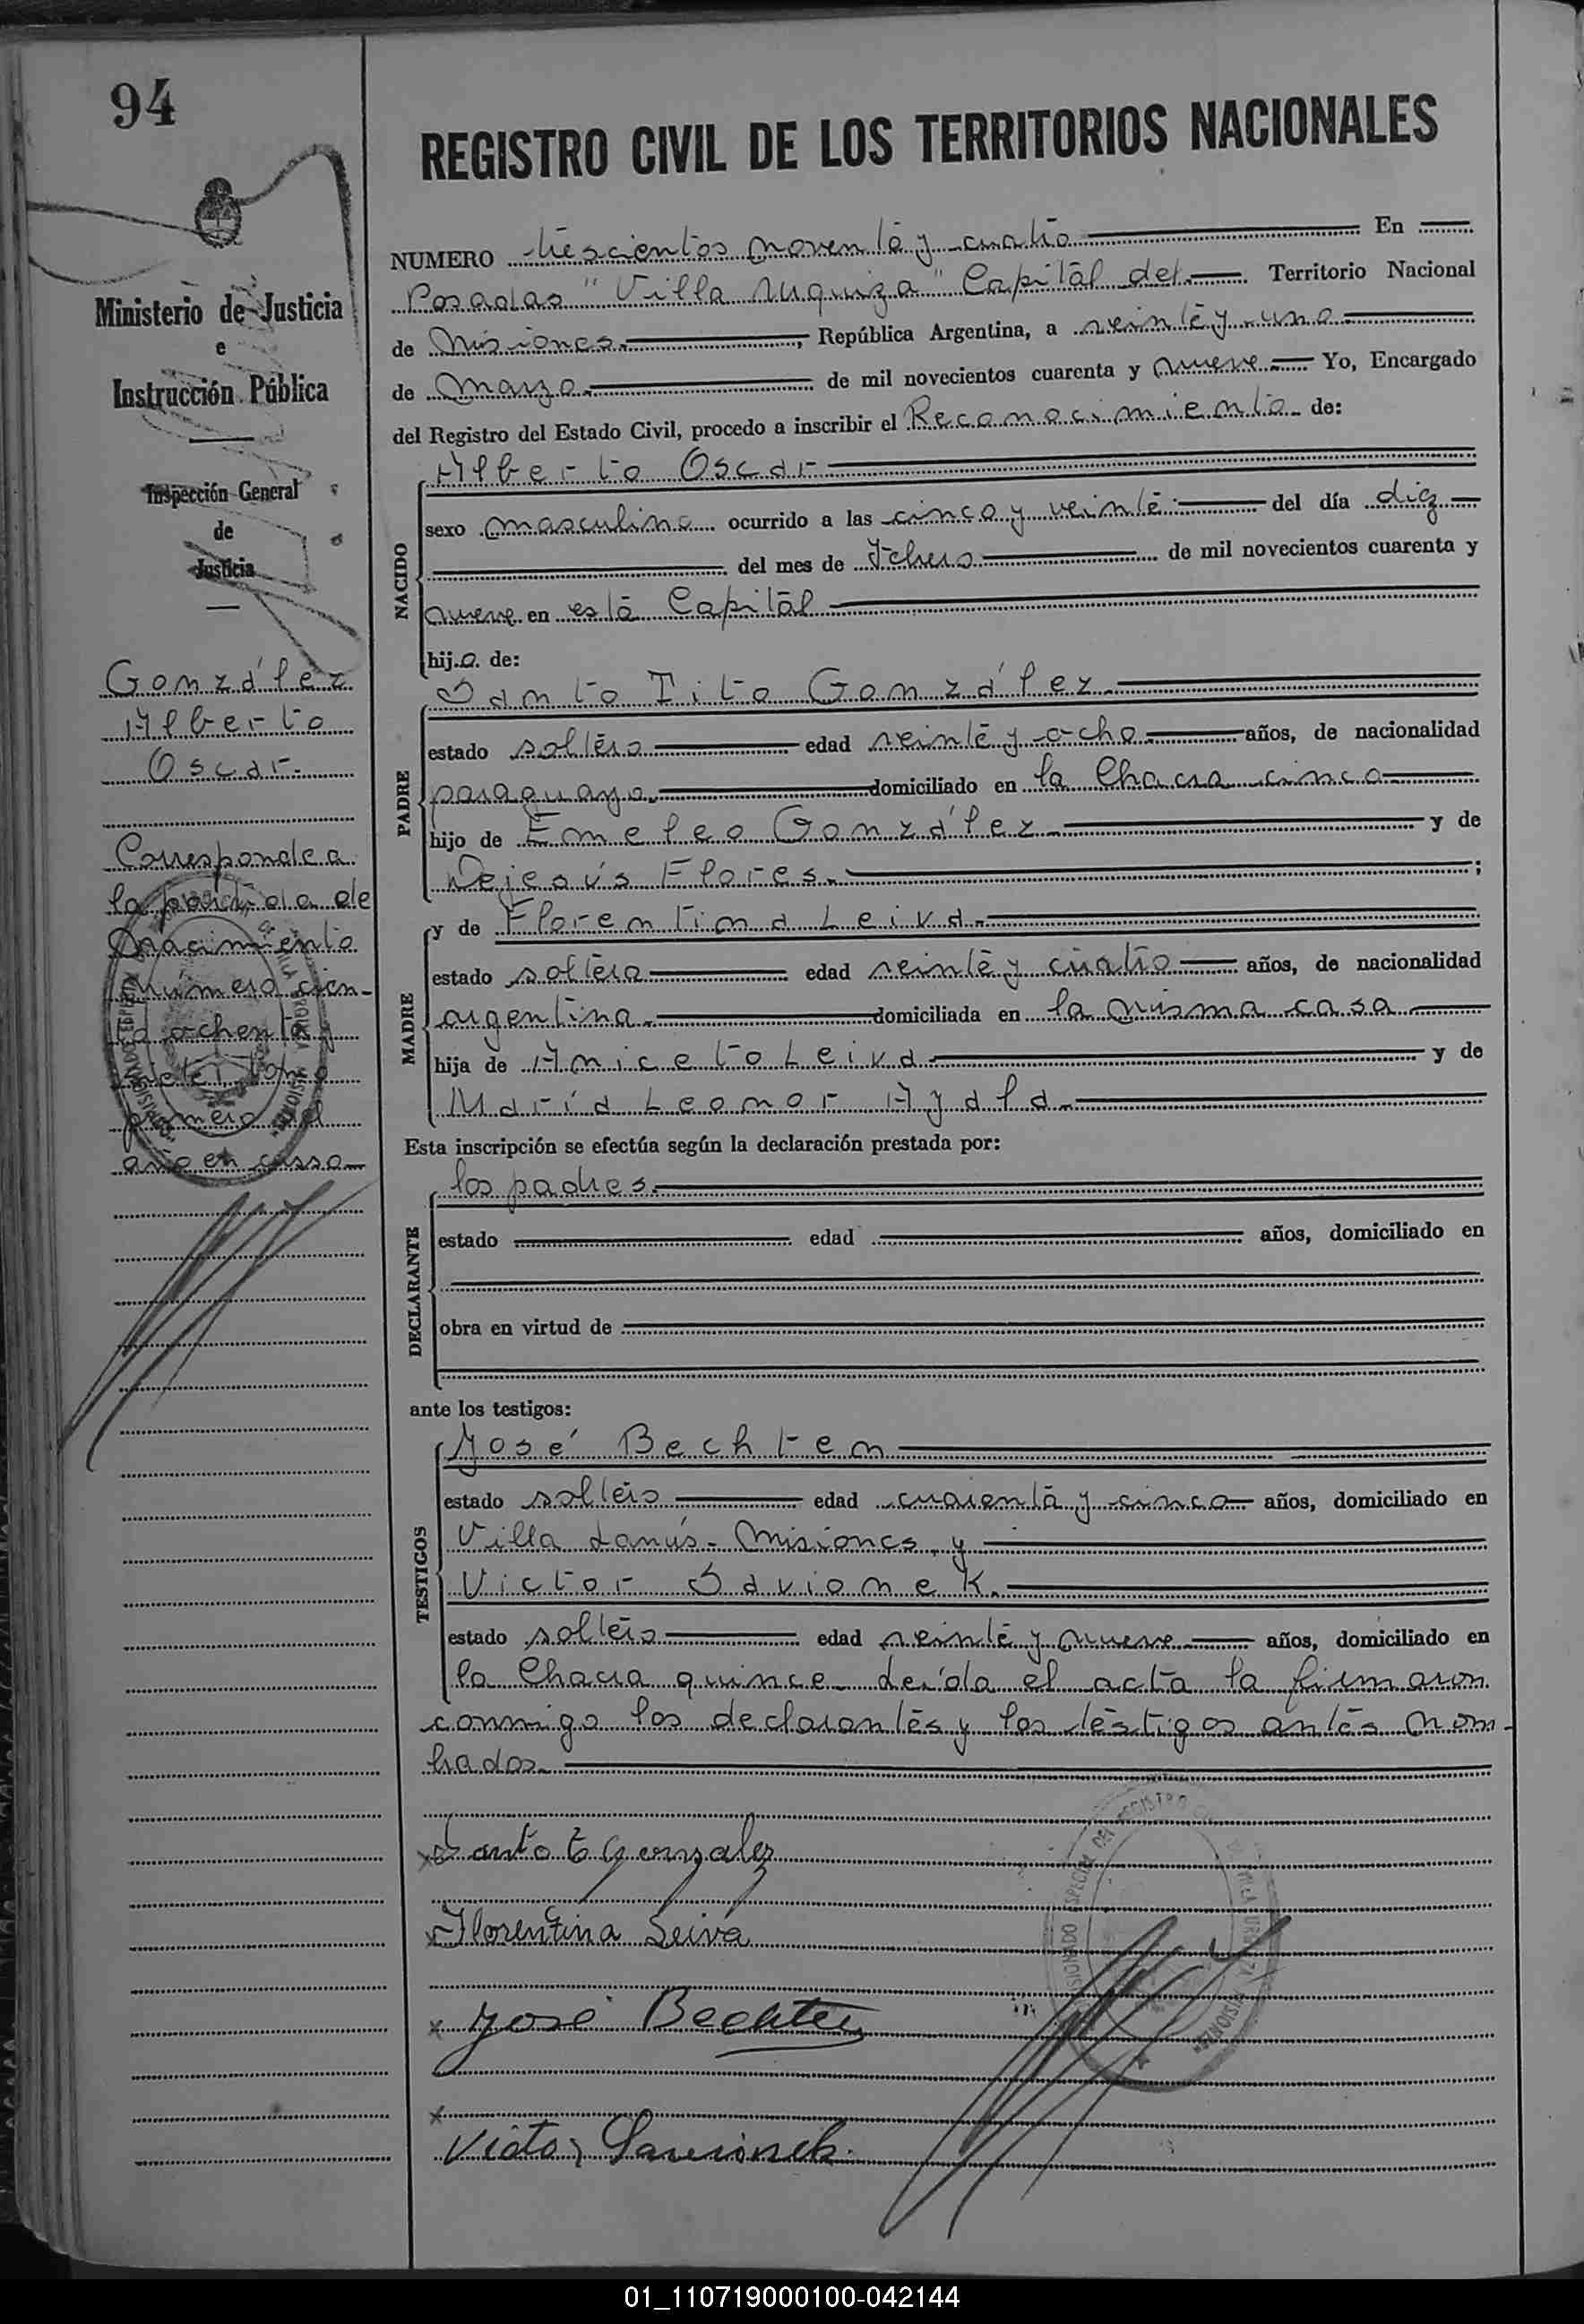 94
REGISTRO CIVIL DE LOS TERRITORIOS NACIONALES
Ministerio de Justicia
e
Instrucción Pública
Inspección General
de
Justicia
González
Alberto
Oscar.
Corresponde a
la partida de
nacimiento
número cien-
to ochenta y
siete tomo
primero del
año en curso
NUMERO trescientos noventa y cuatro En
Posadas "Villa Urquiza" Capital del Territorio Nacional
de Misiones. , República Argentina, a veinte y uno
de Marzo. de mil novecientos cuarenta y nueve Yo, Encargado
del Registro del Estado Civil, procedo a inscribir el Reconocimiento de:
NACIDO
Alberto Oscar
sexo masculino ocurrido a las cinco y veinte del día diez
del mes de de mil novecientos cuarenta y
nueve en esta Capital
hijo de:
PADRE
Santo Tito González.
estado soltero edad veinte y ocho. años, de nacionalidad
paraguayo. domiciliado en la Chacra cinco
hijo de Emeleo González y de
Dejesús Flores. ;
MADRE
y de Florentina Leiva.
estado soltera edad veinte y cuatro años, de nacionalidad
argentina. domiciliada en la misma casa
hija de Aniceto Leiva y de
María Leonor Ayala.
Esta inscripción se efectúa según la declaración prestada por:
DECLARANTE
los padres.
estado edad años, domiciliado en
obra en virtud de
ante los testigos:
TESTIGOS
José Bechten
estado soltero edad cuarenta y cinco años, domiciliado en
Villa Lanús. Misiones, y
Victor Savionek.
estado soltero edad veinte y nueve años, domiciliado en
la Chacra quince. Leída el acta la firmaron
conmigo los declarantes y los testigos antes nom-
brados.
Santo T Gonzalez
Florentina Leiva
José Bechten
Victor Savionek.
01_110719000100-042144